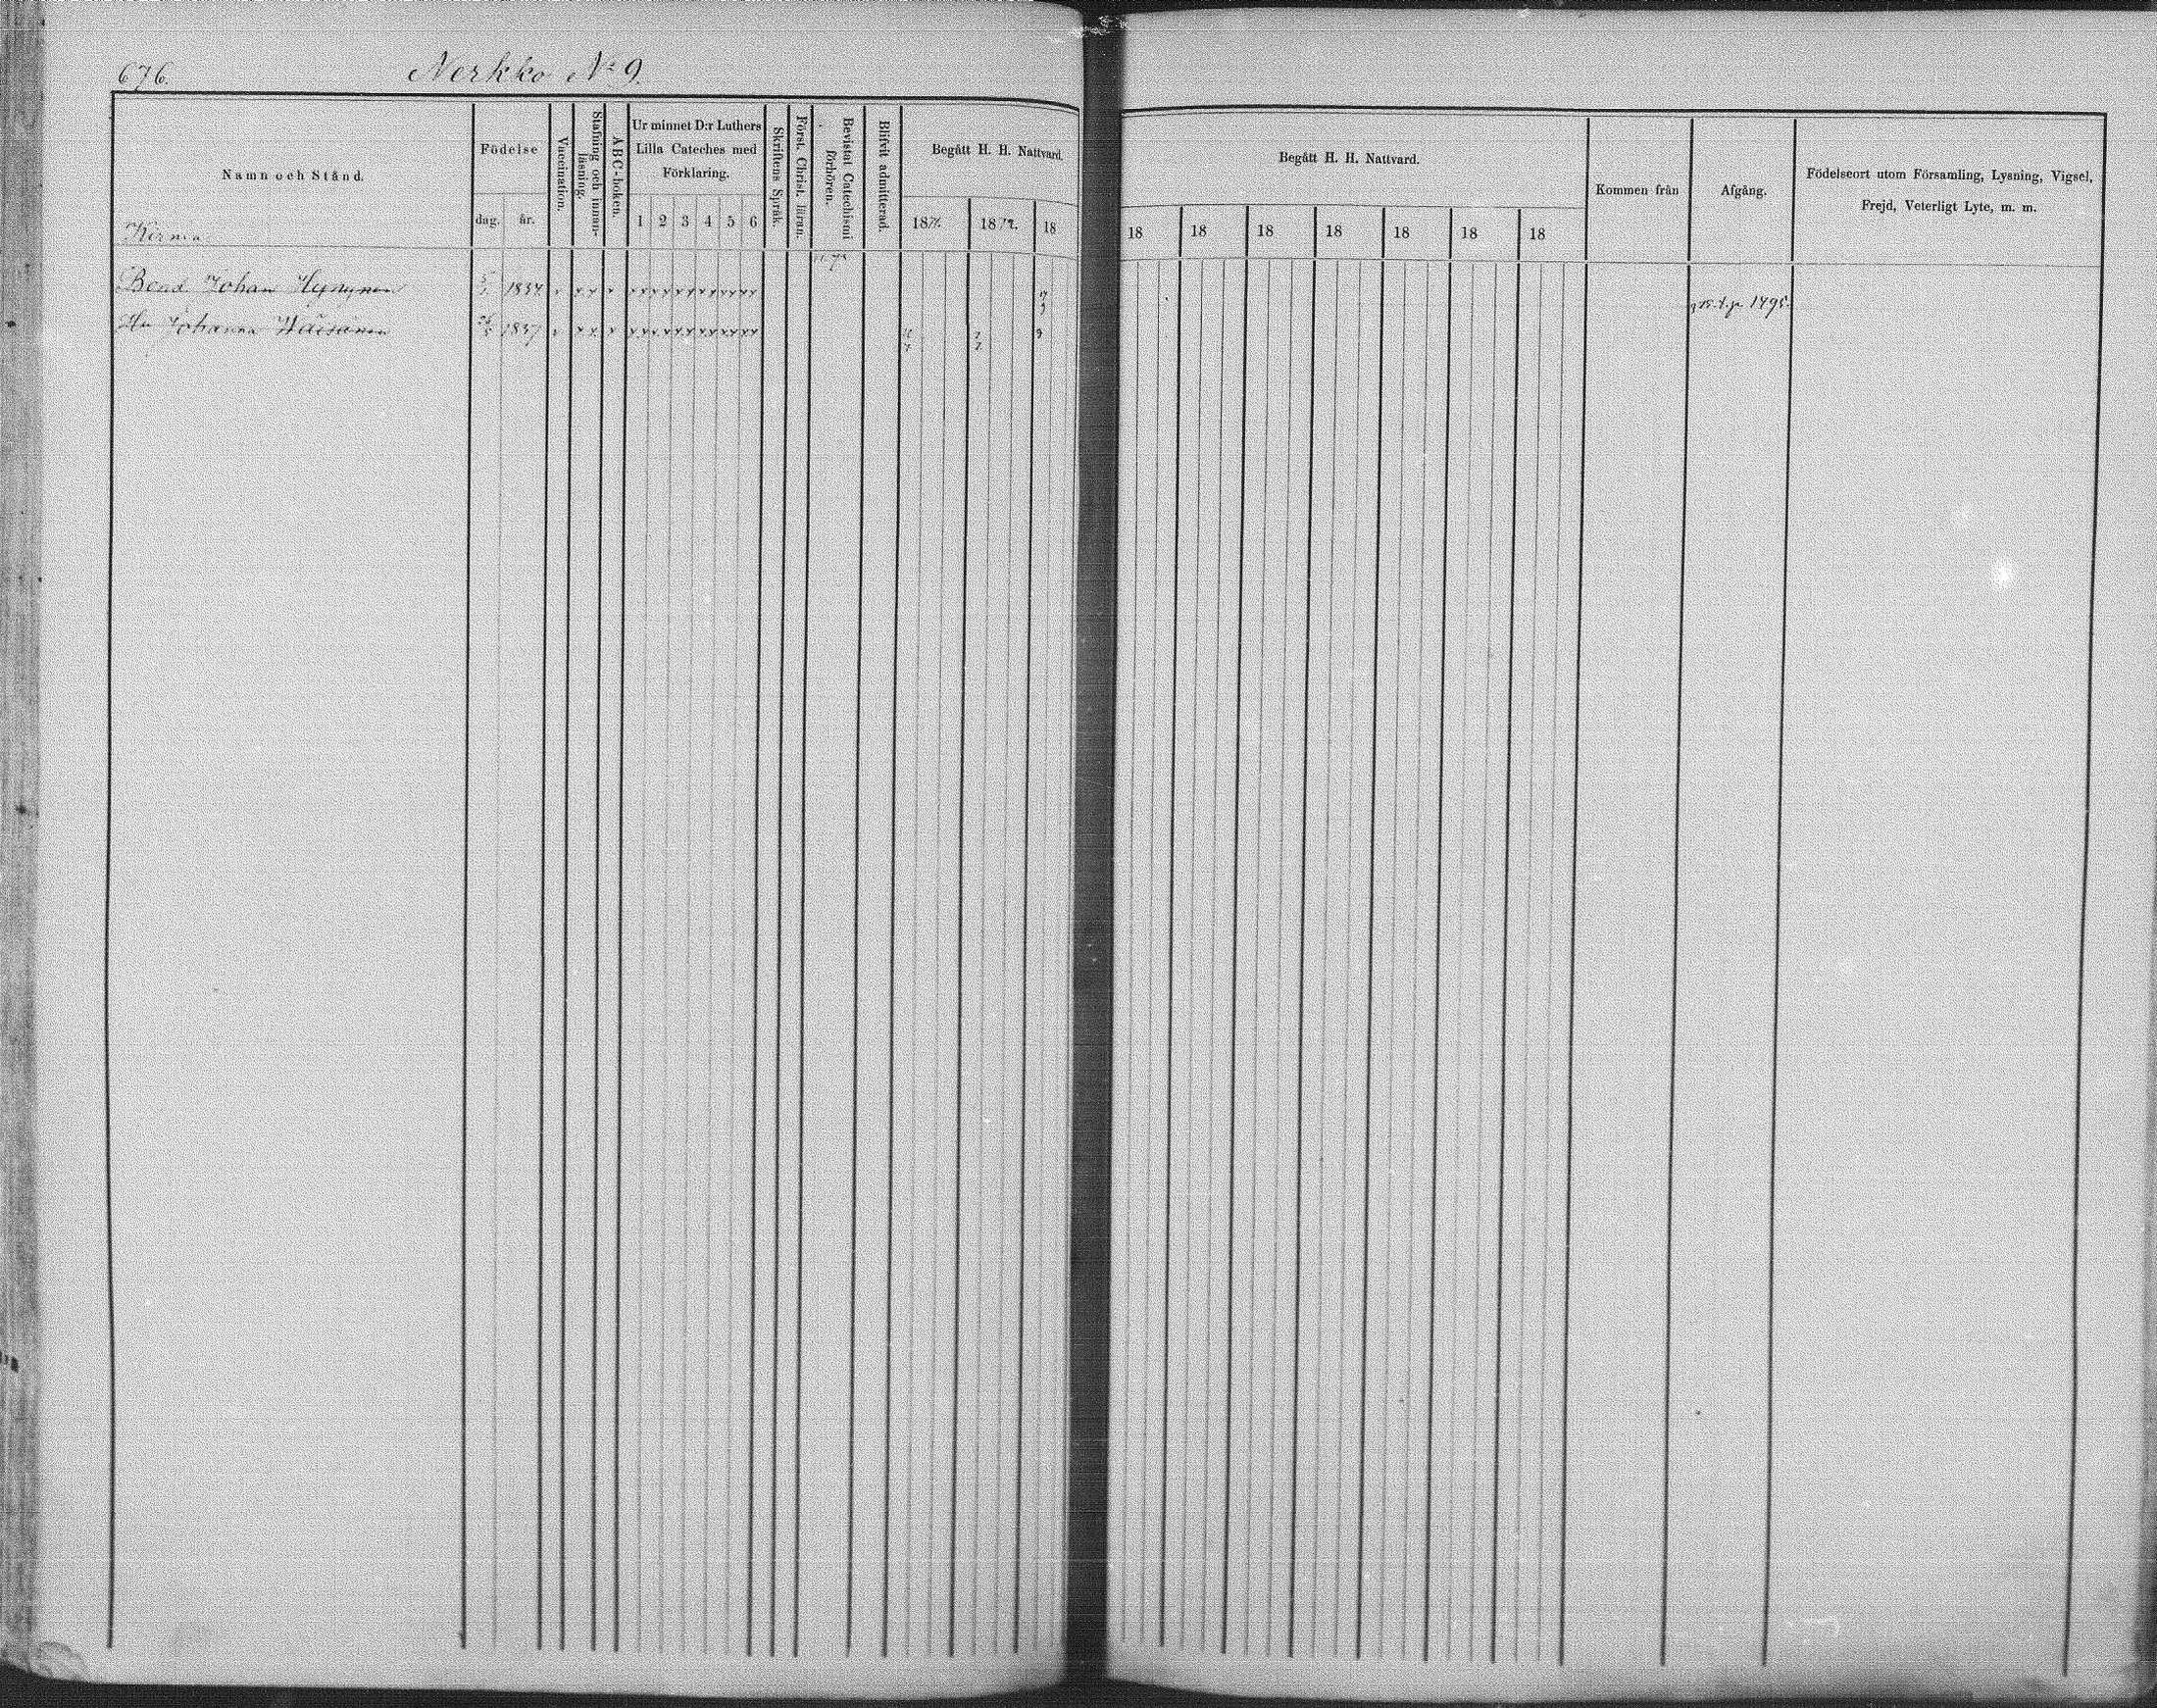 676. Nerkko No 9.
Namn och Stånd.
Födelse
dag. år.
Vaccination.
Stafning och innanläsning.
ABC-boken.
Ur minnet D:r Luthers
Lilla Cateches med
Förklaring.
1 2 3 4 5 6
Skriftens Språk.
Först. Christ. läran.
Bevistat Catechismi förhören.
Blifvit admitterad.
Begått H. H. Nattvard.
18 18 18
Begått H. H. Nattvard.
18 18 18 18 18 18 18
Kommen från
Afgång.
Födelseort utom Församling, Lysning, Vigsel,
Frejd, Veterligt Lyte, m. m.
Johan Hynynen 1834
Hu Johanna Wäisänen 1837